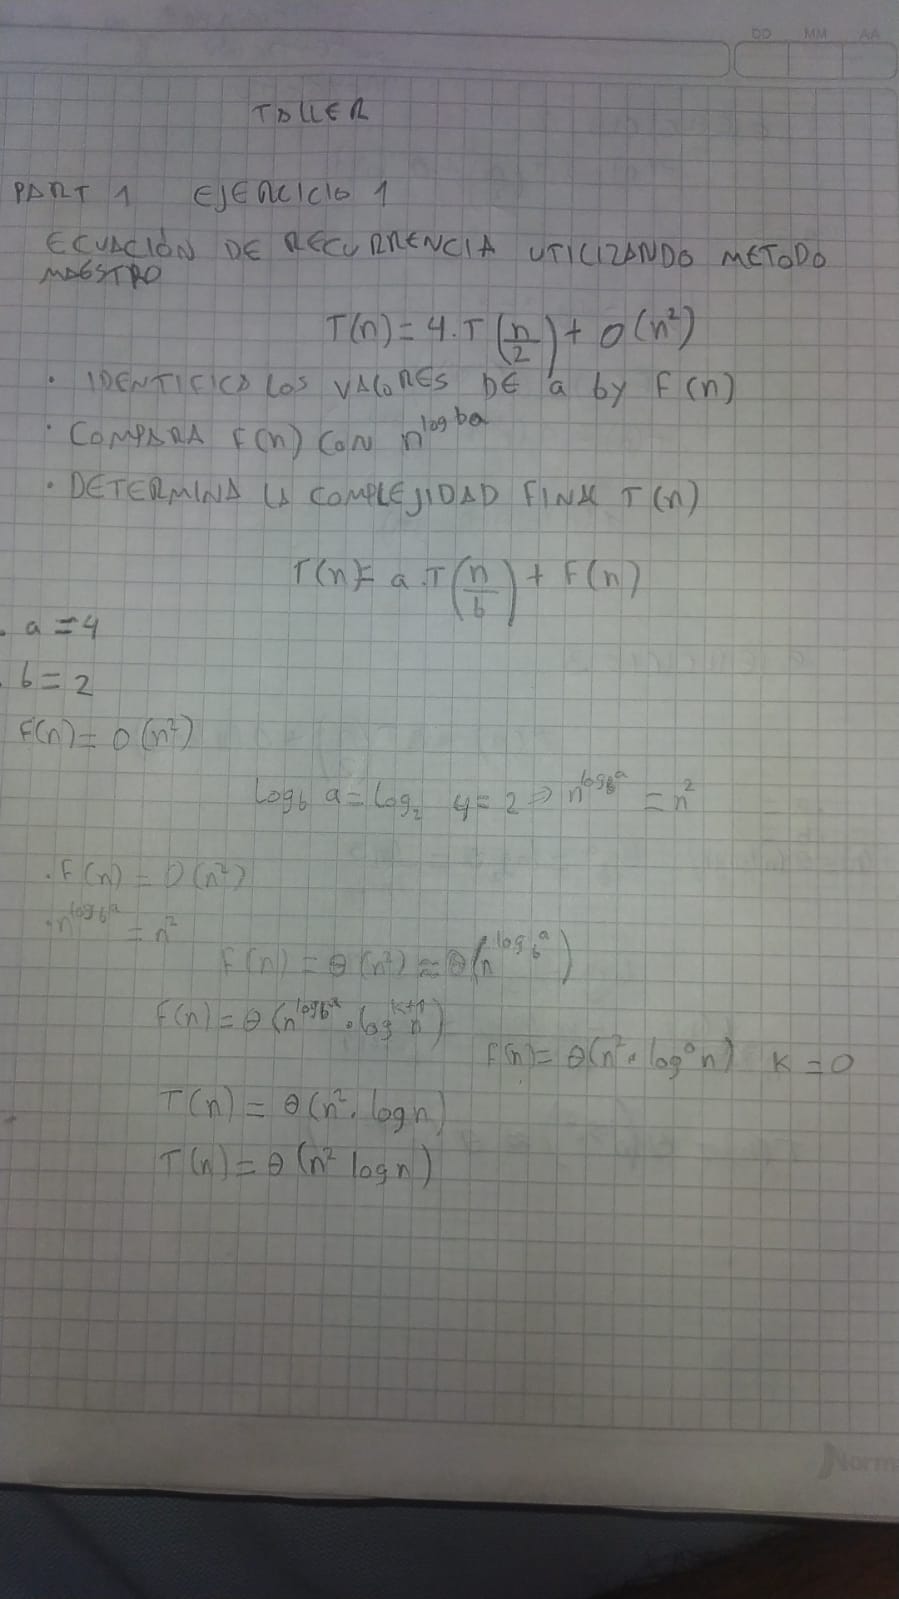 DD MM AA
TALLER
PART 1 EJERCICIO 1
ECUACIÓN DE RECURRENCIA UTILIZANDO METODO
MAESTRO
T(n) = 4.T(n/2) + O(n²)
· IDENTIFICA LOS VALORES DE a b y F(n)
· COMPARA F(n) CON n^log ba
· DETERMINA LA COMPLEJIDAD FINAL T(n)
T(n) = a.T(n/b) + F(n)
. a = 4
. b = 2
F(n) = O(n²)
log_b a = log_2 4 = 2 ⇒ n^log_b a = n²
. F(n) = O(n²)
· n^log_b a = n²
F(n) = θ(n²) = θ(n^log_b a)
F(n) = θ(n^log_b a · log^k+1 n)
F(n) = θ(n² · log⁰ n) K = 0
T(n) = θ(n² · log n)
T(n) = θ(n² log n)
Norm